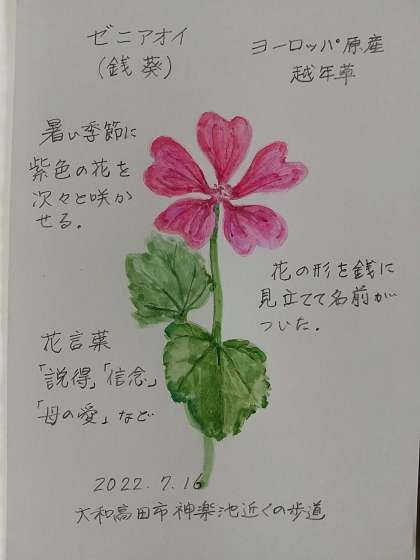 ゼニアオイ
(銭葵)
ヨーロッパ原産
越年草
暑い季節に
紫色の花を
次々と咲か
せる。
花の形を銭に
見立てて名前が
ついた。
花言葉
「説得」「信念」
「母の愛」など
2022.7.16
大和高田市神楽池近くの歩道